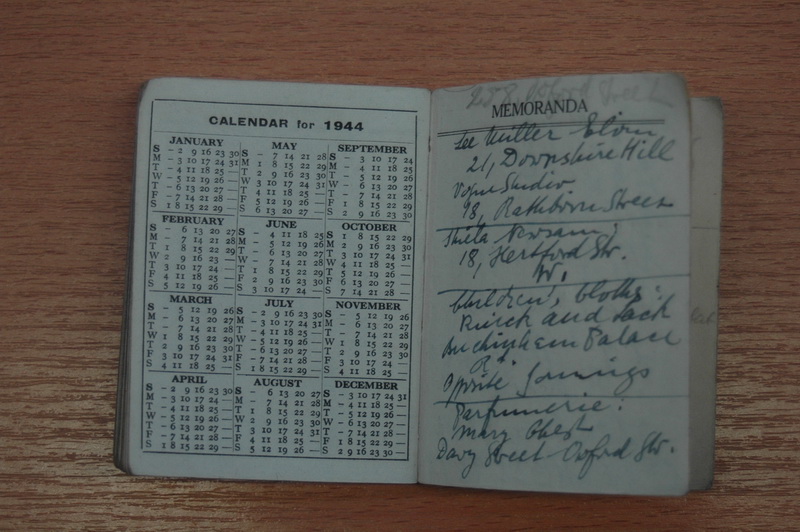 CALENDAR for 1944
JANUARY
S – 2 9 16 23 30
M – 3 10 17 24 31
T – 4 11 18 25 —
W – 5 12 19 26 —
T – 6 13 20 27 —
F – 7 14 21 28 —
S 1 8 15 22 29 —
FEBRUARY
S – 6 13 20 27
M – 7 14 21 28
T 1 8 15 22 29
W 2 9 16 23 —
T 3 10 17 24 —
F 4 11 18 25 —
S 5 12 19 26 —
MARCH
S – 5 12 19 26
M – 6 13 20 27
T – 7 14 21 28
W 1 8 15 22 29
T 2 9 16 23 30
F 3 10 17 24 31
S 4 11 18 25 —
APRIL
S – 2 9 16 23 30
M – 3 10 17 24 —
T – 4 11 18 25 —
W – 5 12 19 26 —
T – 6 13 20 27 —
F – 7 14 21 28 —
S 1 8 15 22 29 —
MAY
S – 7 14 21 28
M 1 8 15 22 29
T 2 9 16 23 30
W 3 10 17 24 31
T 4 11 18 25 —
F 5 12 19 26 —
S 6 13 20 27 —
JUNE
S – 4 11 18 25
M – 5 12 19 26
T – 6 13 20 27
W – 7 14 21 28
T 1 8 15 22 29
F 2 9 16 23 30
S 3 10 17 24 —
JULY
S – 2 9 16 23 30
M – 3 10 17 24 31
T – 4 11 18 25 —
W – 5 12 19 26 —
T – 6 13 20 27 —
F – 7 14 21 28 —
S 1 8 15 22 29 —
AUGUST
S – 6 13 20 27
M – 7 14 21 28
T 1 8 15 22 29
W 2 9 16 23 30
T 3 10 17 24 31
F 4 11 18 25 —
S 5 12 19 26 —
SEPTEMBER
S – 3 10 17 24
M – 4 11 18 25
T – 5 12 19 26
W – 6 13 20 27
T – 7 14 21 28
F 1 8 15 22 29
S 2 9 16 23 30
OCTOBER
S 1 8 15 22 29
M 2 9 16 23 30
T 3 10 17 24 31
W 4 11 18 25 —
T 5 12 19 26 —
F 6 13 20 27 —
S 7 14 21 28 —
NOVEMBER
S – 5 12 19 26
M – 6 13 20 27
T – 7 14 21 28
W 1 8 15 22 29
T 2 9 16 23 30
F 3 10 17 24 —
S 4 11 18 25 —
DECEMBER
S – 3 10 17 24 31
M – 4 11 18 25 —
T – 5 12 19 26 —
W – 6 13 20 27 —
T – 7 14 21 28 —
F 1 8 15 22 29 —
S 2 9 16 23 30 —
Oxford Street
MEMORANDA
Lee Miller
21, Downshire Hill
Vogue Studio
Rathborn Street
18, Hertford Str.
W. 1
Children's Cloths:
and Jack
Buckingham Palace
Rd.
Opposite Gorrings
Parfumerie:
Mary
Davy Street – Oxford Str.